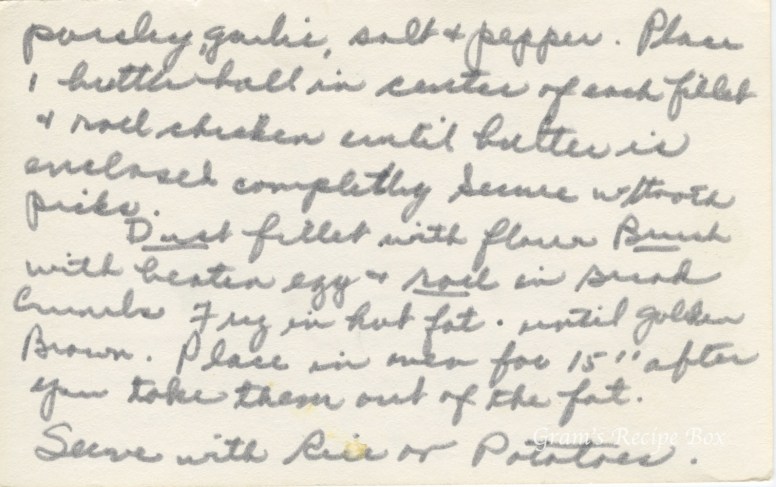 parsley, garlic, salt + pepper. Place
1 butter ball in center of each fillet
+ roll chicken until butter is
enclosed completly Secure w/tooth
picks.
Dust fillet with flour Brush
with beaten egg + roll in bread
Crumbs Fry in hot fat. until golden
Brown. Place in oven for 15" after
you take them out of the fat.
Serve with Rice or Potatoes.
Gram's Recipe Box